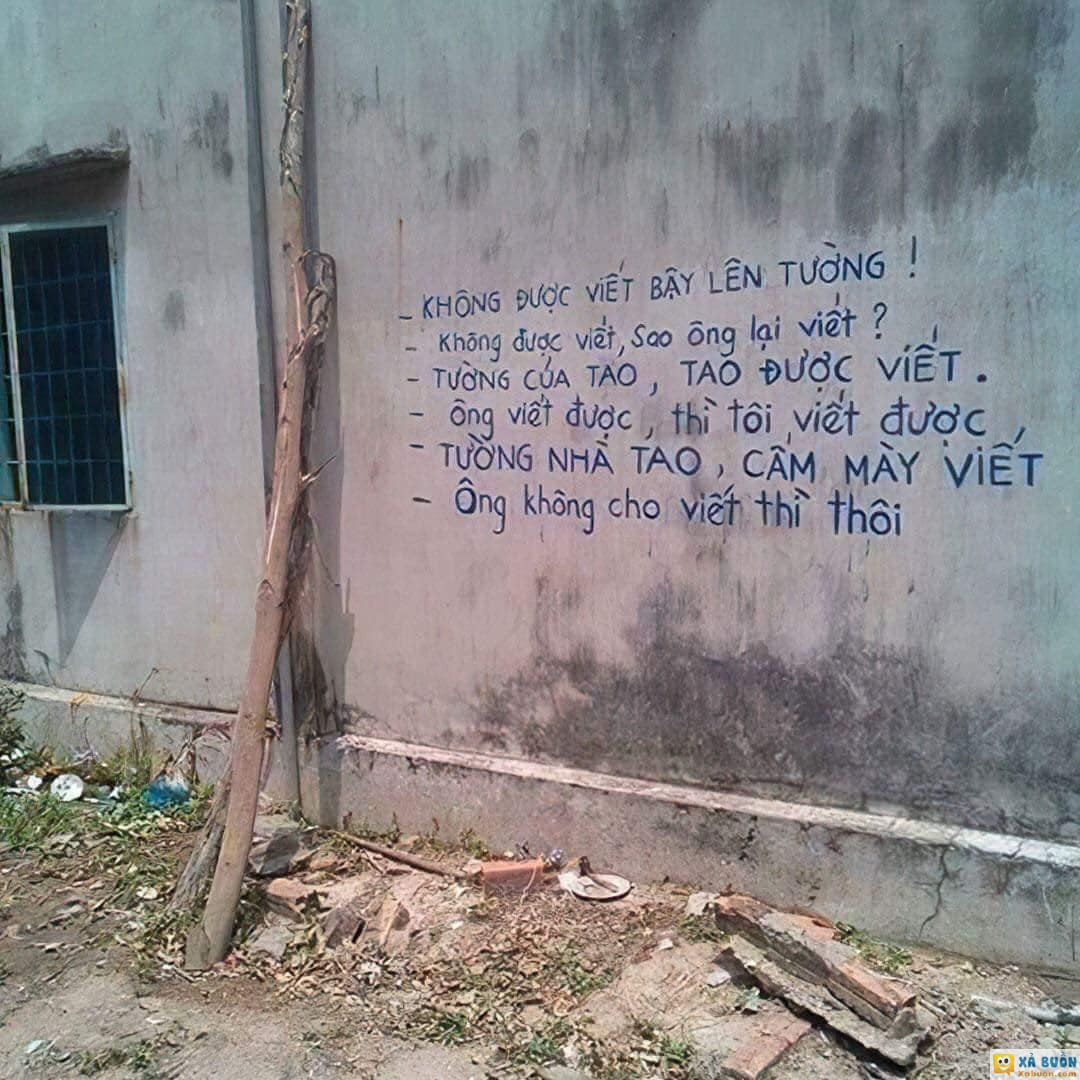 - KHÔNG ĐƯỢC VIẾT BẬY LÊN TƯỜNG !
- Không được viết, Sao ông lại viết ?
- TƯỜNG CỦA TAO, TAO ĐƯỢC VIẾT.
- Ông viết được, thì tôi viết được,
- TƯỜNG NHÀ TAO, CẤM MÀY VIẾT
- Ông không cho viết thì thôi
XẢ BUỒN
Xabuon.com